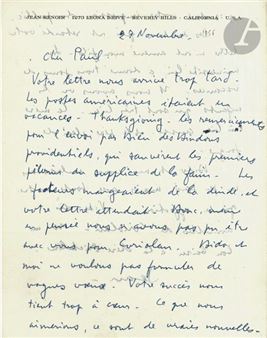 JEAN RENOIR · 1273 LEONA DRIVE · BEVERLY HILLS · CALIFORNIA · U.S.A.
29 Novembre 1956
Cher Paul
Votre lettre nous arrive trop tard
les postes américaines étaient en
vacances - Thanksgiving. Les remerciements
pour l'envoi par Dido des
providentiels, qui sauvèrent les premiers
pèlerins du supplice de la faim. Les
facteurs mangeaient de la dinde, et
votre lettre attendait. Donc, même
en pensée nous n'avons pas pu être
avec vous pour Coriolan. Dido et
moi ne voulons pas formuler de
vagues vœux. Votre succès nous
tient trop à cœur. Ce que nous
aimerions, ce sont de vraies nouvelles.